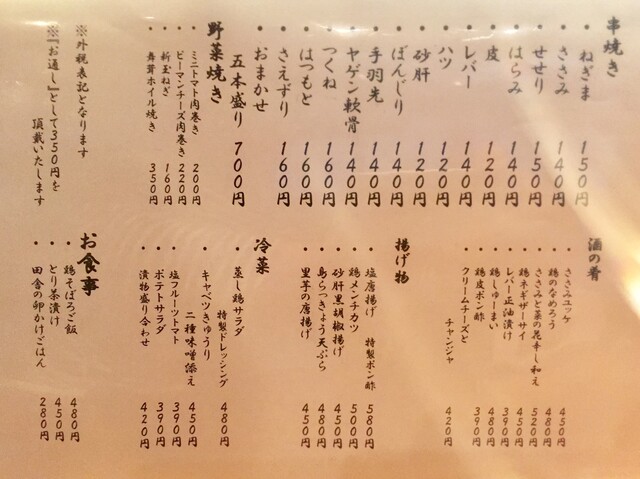 串焼き
・ねぎま 150円
・ささみ 140円
・せせり 150円
・はらみ 140円
・皮 120円
・レバー 140円
・ハツ 120円
・砂肝 120円
・ぼんじり 140円
・手羽先 140円
・ヤゲン軟骨 140円
・つくね 160円
・はつもと 160円
・さえずり 160円
・おまかせ
五本盛り 700円
野菜焼き
・ミニトマト肉巻き 200円
・ピーマンチーズ肉巻き 220円
・新玉ねぎ 160円
・舞茸ホイル焼き 350円
※外税表記となります
※『お通し』として350円を
頂戴いたします
酒の肴
・ささみユッケ 450円
・鶏のなめろう 480円
・ささみと菜の花辛し和え 520円
・鶏ネギザーサイ 450円
・レバー正油漬け 390円
・鶏しゅーまい 480円
・鶏皮ポン酢 390円
・クリームチーズと
チャンジャ 420円
揚げ物
・塩唐揚げ 特製ポン酢 580円
・鶏メンチカツ 500円
・砂肝黒胡椒揚げ 450円
・島らっきょう天ぷら 480円
・里芋の唐揚げ 450円
冷菜
・蒸し鶏サラダ
特製ドレッシング 480円
・キャベツきゅうり
二種味噌添え 450円
・塩フルーツトマト 390円
・ポテトサラダ 390円
・漬物盛り合わせ 420円
お食事
・鶏そぼろご飯 480円
・とり茶漬け 450円
・田舎の卵かけごはん 280円